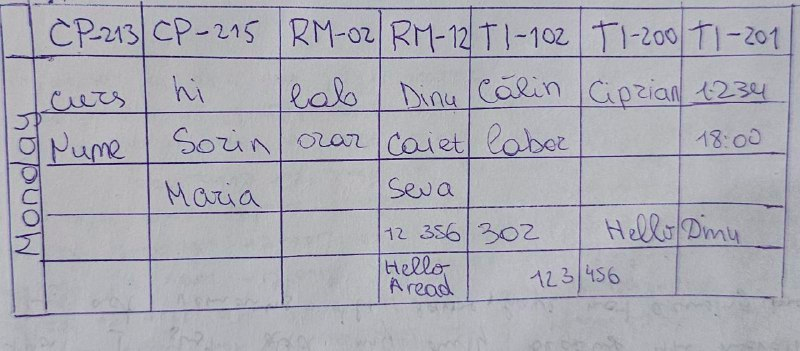 CP-213 CP-215 RM-02 RM-12 TI-102 TI-200 TI-201
Monday
curs hi lab Dinu Călin Ciprian 1234
Nume Sorin orar Caiet labor 18:00
Maria Seva
12 356 302 Hello Dinu
Hello 123 456
Aread